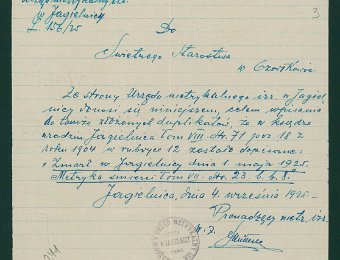 w Jagielnicy
L. 156/25
3
Do
Świetnego Starostwa
w Czortkowie
Ze strony Urzędu metrykalnego izr. w Jagiel-
nicy donosi się niniejszem, celem wpisania
do tamże złożonych duplikatów, że w księdze
urodzin Jagielnica Tom VIII str. 71 poz. 18 z
roku 1904 w rubryce 12 zostało dopisane:
"Zmarł w Jagielnicy dnia 1. maja 1925.
Metryka śmierci Tom VII. str. 23 l. b. 8.
Jagielnica, dnia 4. września 1925.
Prowadzący metr. izr.